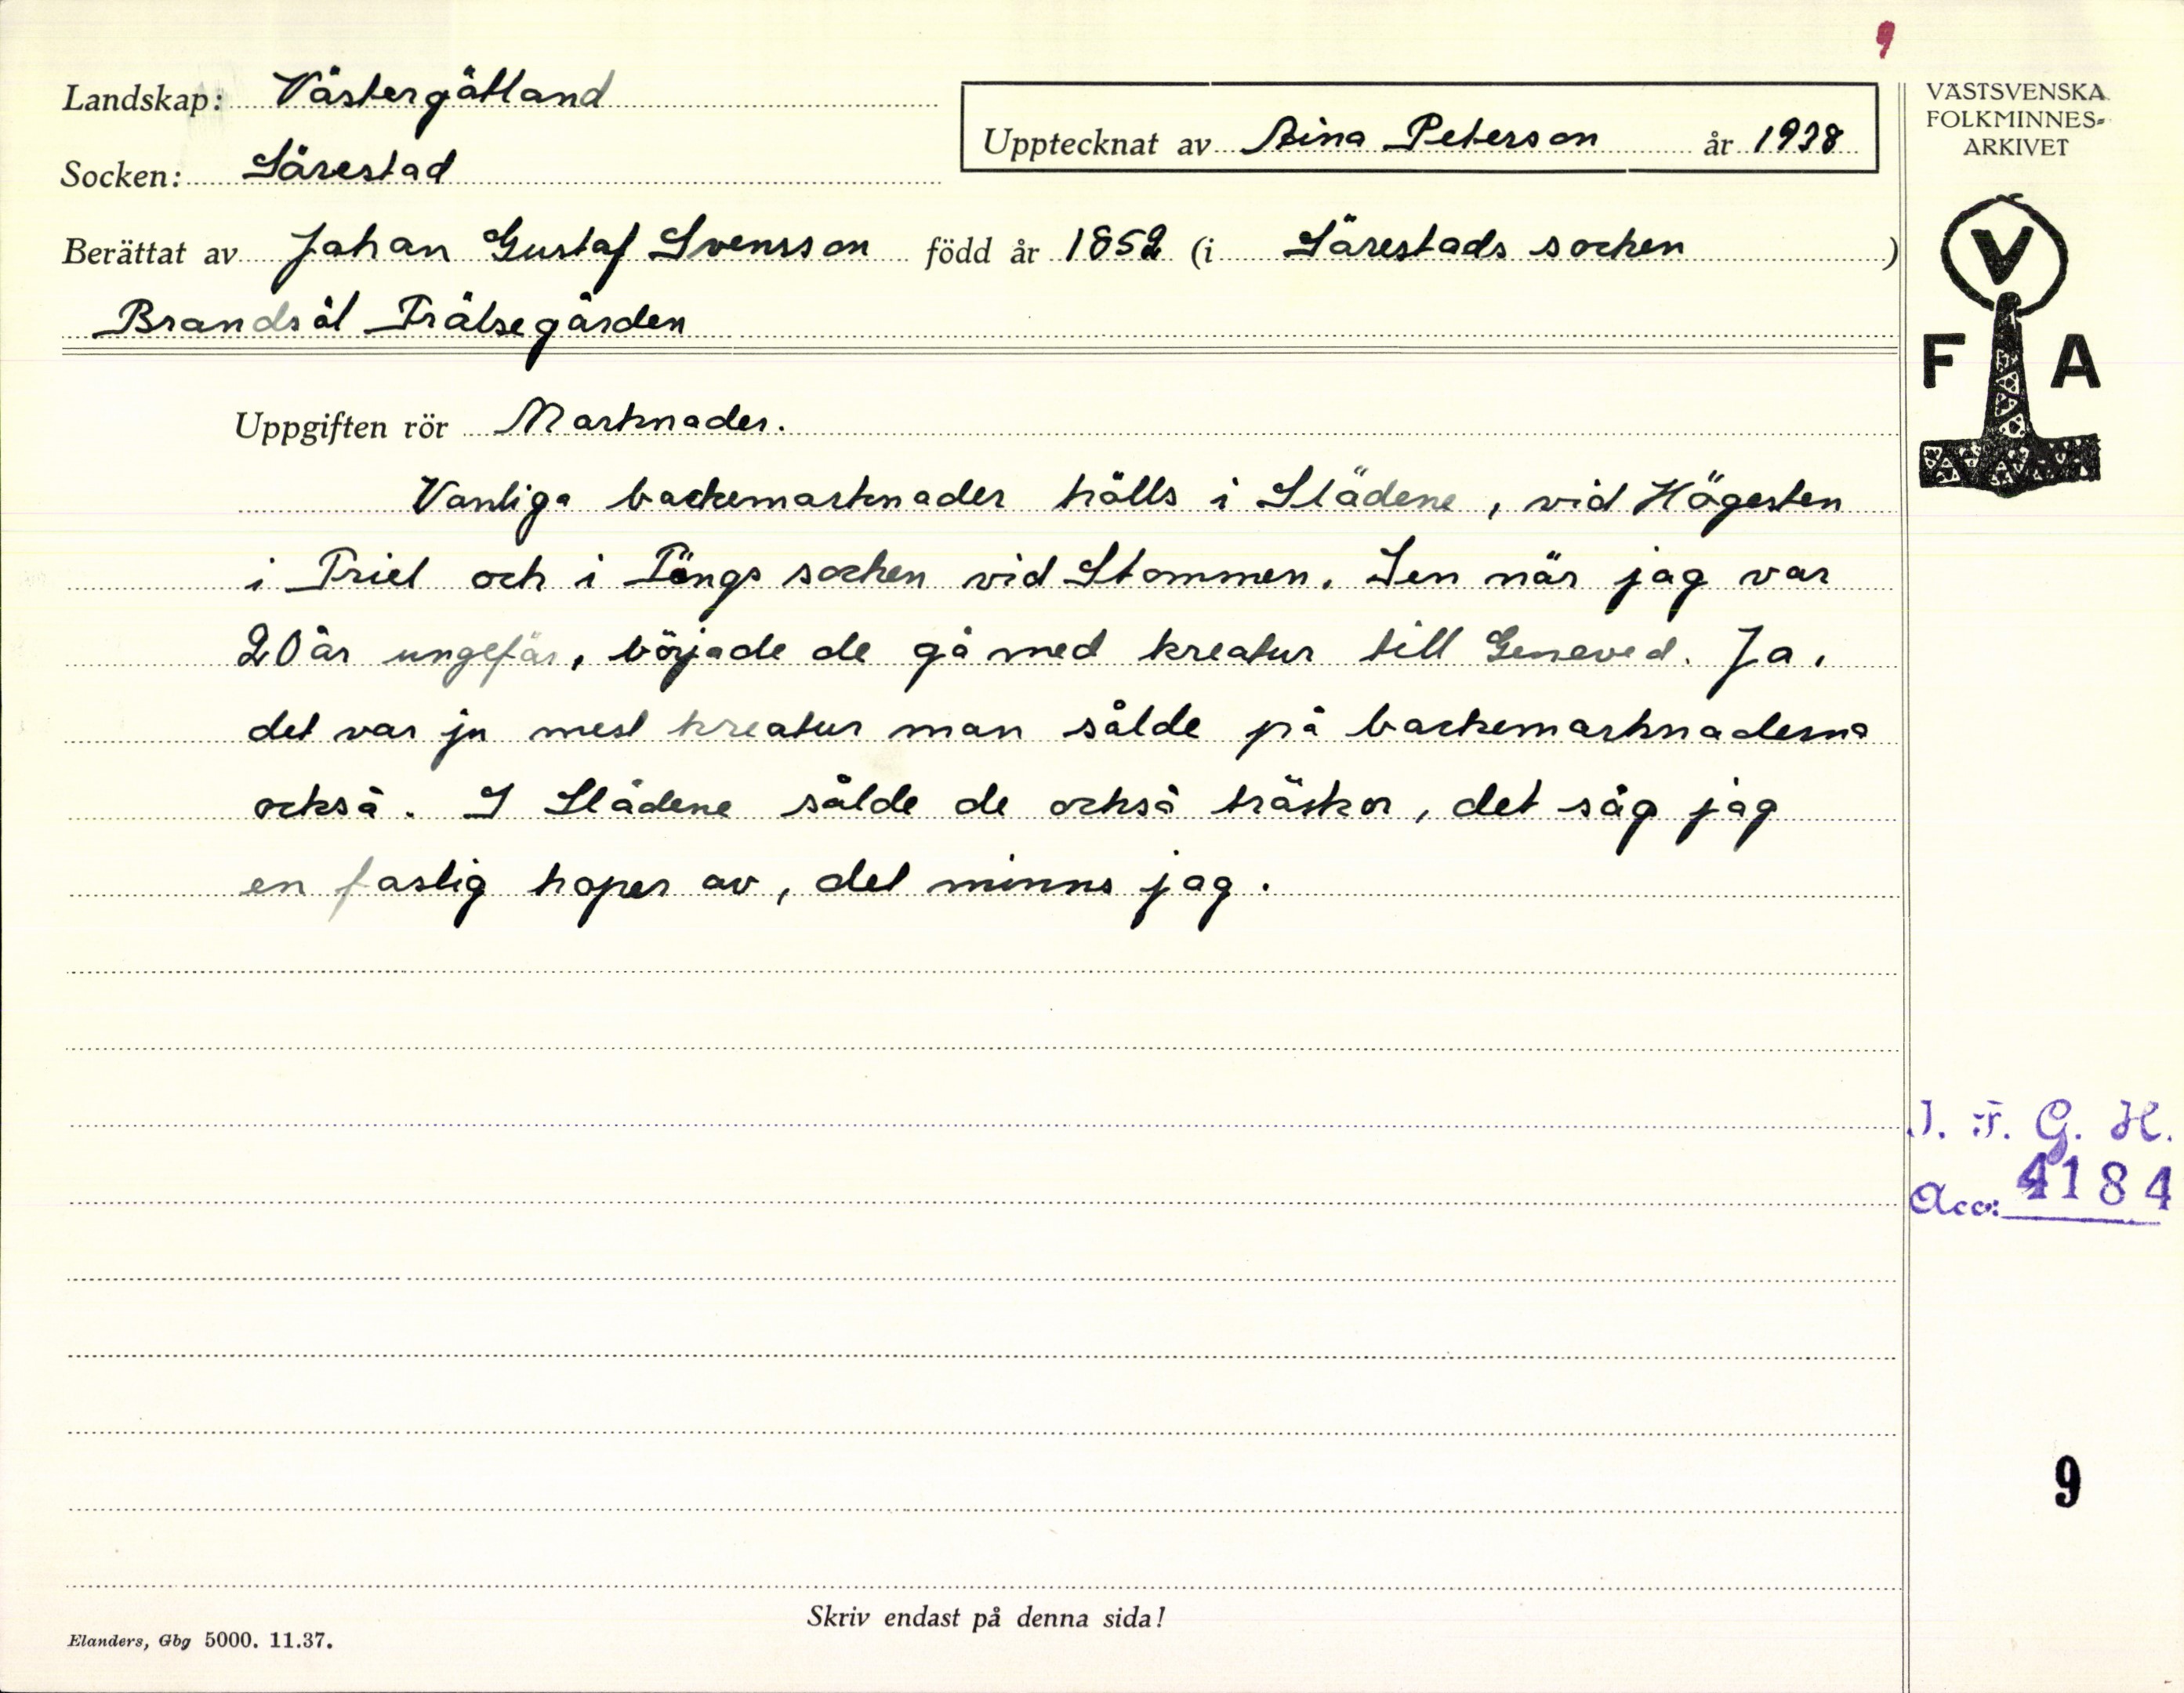 9
Landskap: Västergötland
VÄSTSVENSKA
FOLKMINNES-
ARKIVET
Upptecknat av Aina Peterson år 1938
Socken: Särestad
Berättat av Johan Gustaf Svensson född år 1852 (i Särestads socken)
Brandsål Frälsegården
V
F A
Uppgiften rör Marknader.
Vanliga backemarknader hölls i Slädene, vid Högesten
i Friel och i Längs socken vid Stommen. Sen när jag var
20 år ungefär, började de gå med kreatur till Geneved. Ja,
det var ju mest kreatur man sålde på backemarknaderna
också. I Slädene sålde de också träskor, det såg jag
en faslig hoper av, det minns jag.
I. F. G. H.
Acc: 4184
9
Skriv endast på denna sida!
Elanders, Gbg 5000. 11.37.